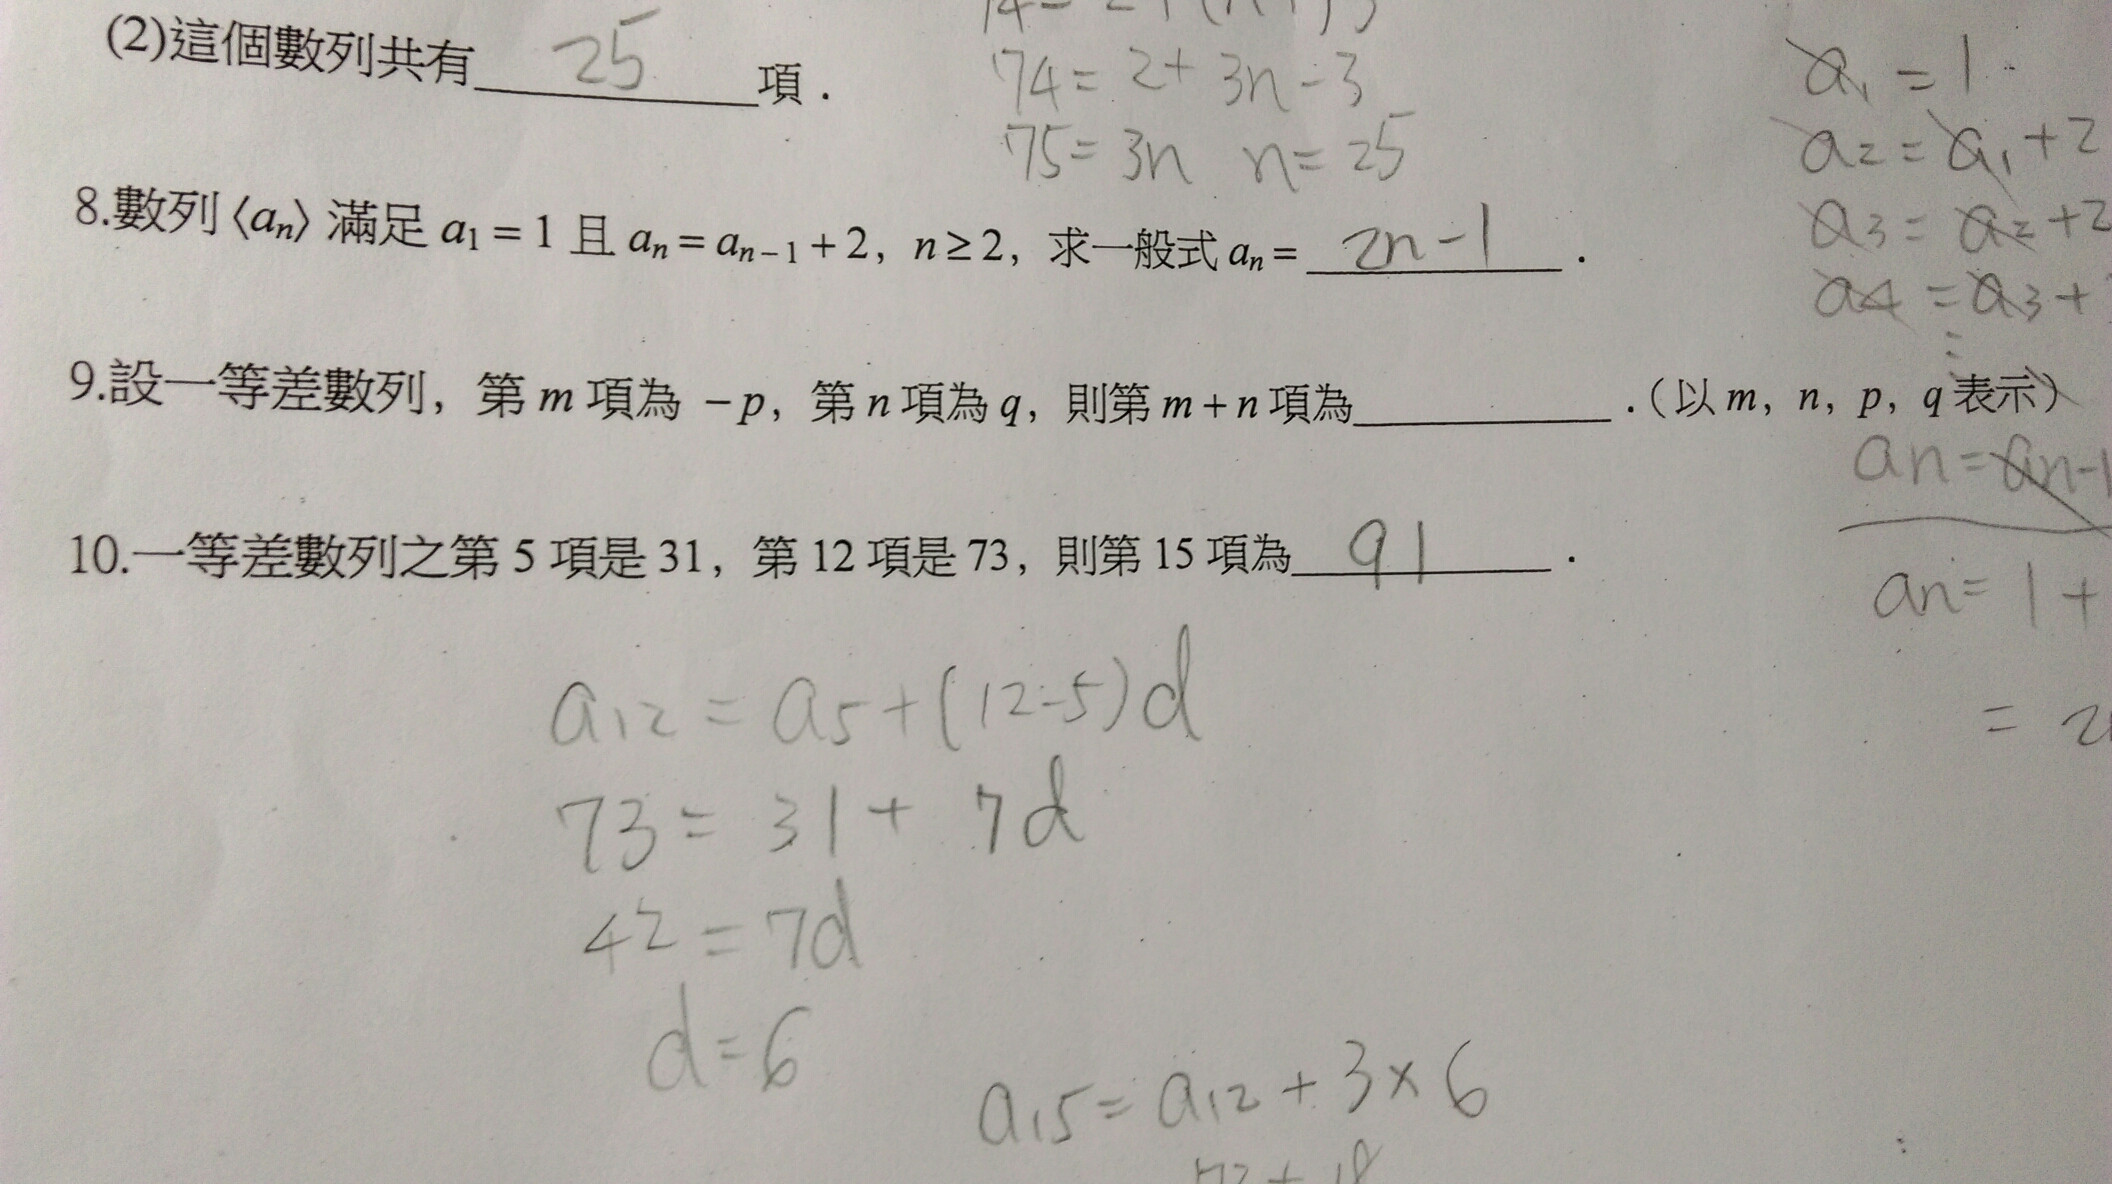 (2)這個數列共有 25 項.
74 = 2 + 3n - 3
75 = 3n n = 25
a1 = 1
a2 = a1 + 2
a3 = a2 + 2
a4 = a3 +
⋮
8.數列〈an〉滿足 a1 = 1 且 an = an-1 + 2, n ≥ 2, 求一般式 an = 2n-1 .
9.設一等差數列, 第 m 項為 -p, 第 n 項為 q, 則第 m + n 項為 .(以 m, n, p, q 表示)
an = an-1
an = 1 +
= 2
10.一等差數列之第 5 項是 31, 第 12 項是 73, 則第 15 項為 91 .
a12 = a5 + (12-5)d
73 = 31 + 7d
42 = 7d
d = 6
a15 = a12 + 3 × 6
73 + 18